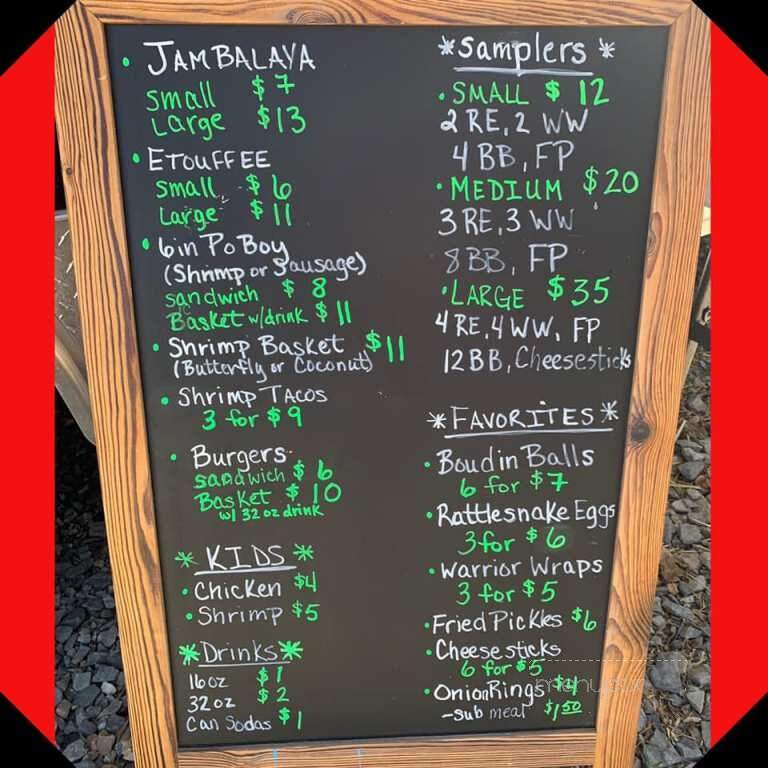 JAMBALAYA
small $7
Large $13
ETOUFFEE
small $6
Large $11
6in Po Boy
(Shrimp or Sausage)
sandwich $8
Basket w/drink $11
Shrimp Basket $11
(Butterfly or Coconut)
Shrimp TACOS
3 for $9
Burgers
sandwich $6
Basket $10
w/ 32 oz drink
*KIDS*
Chicken $4
Shrimp $5
*Drinks*
16 oz $1
32 oz $2
Can Sodas $1
*Samplers*
SMALL $12
2 RE, 2 WW
4 BB, FP
MEDIUM $20
3 RE, 3 WW
8 BB, FP
LARGE $35
4 RE, 4 WW, FP
12 BB, Cheesesticks
*FAVORITES*
Boudin Balls
6 for $7
Rattlesnake Eggs
3 for $6
Warrior Wraps
3 for $5
Fried Pickles $6
Cheesesticks
6 for $5
Onion Rings $4
-sub meal $1.50